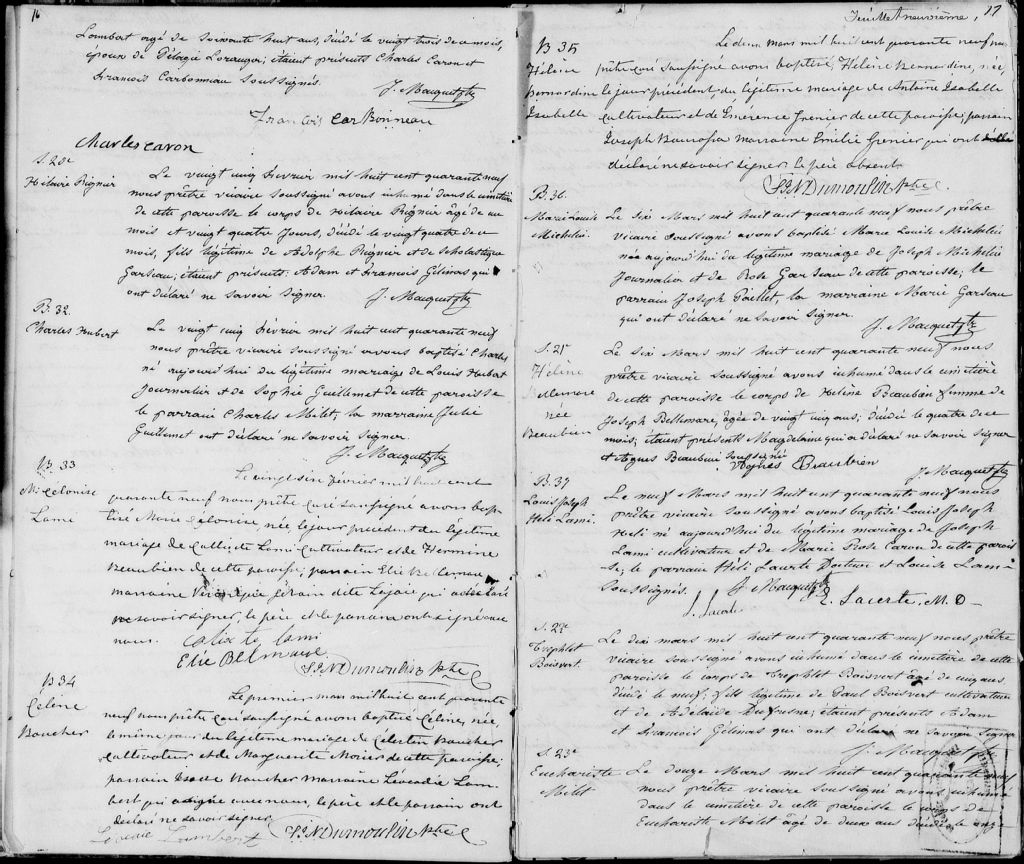 16
Lambert agé de soixante huit ans, décédé le vingt trois de ce mois,
époux de Pélagie Loranger; étaient présents Charles Caron et
François Carbonneau soussignés.
J. Macquet Ptr
François Carbonneau
Charles Caron
S. 20e
Hilaire Régnier
Le vingt cinq Février mil huit cent quarante neuf
nous prêtre vicaire soussigné avons inhumé dans le cimetière
de cette paroisse le corps de Hilaire Régnier âgé de un
mois et vingt quatre jours, décédé le vingt quatre de ce
mois, fils légitime de Adolphe Régnier et de Scholastique
Garseau; étaient présents Adam et François Gélinas qui
ont déclaré ne savoir signer. J. Macquet Ptr
B. 32
Charles Hubert
Le vingt cinq Février mil huit cent quarante neuf
nous prêtre vicaire soussigné avons baptisé Charles
né aujourd'hui du légitime mariage de Louis Hubert
Journalier et de Sophie Guillemet de cette paroisse
le parrain Charles Milot, la marraine Julie
Guillemet ont déclaré ne savoir signer.
J. Macquet Ptr
B 33
Mie Célonise
Lami
Le vingt six février mil huit cent
quarante neuf nous prêtre curé soussigné avons bap-
tisé Marie Célonise, née le jour précédent du légitime
mariage de Calixte Lami cultivateur et de Hermine
Beaubien de cette paroisse; parrain Elie Bellemare
marraine dite Lajoie qui a déclaré
ne savoir signer, le père et le parrain ont signé avec
nous.
Calixte Lami
Elie Bellmare
S.N. Dumoulin Ptre
B 34
Céline
Boucher
Le premier mars mil huit cent quarante
neuf nous prêtre curé soussigné avons baptisé Céline, née
le même jour du légitime mariage de Célestin Boucher
cultivateur et de Marguerite de cette paroisse;
parrain Boucher marraine Léocadie Lam-
bert qui a signé avec nous, le père et le parrain ont
déclaré ne savoir signer.
Lambert S.N. Dumoulin Ptre
Feuillet neuvième, 17
B 35
Hélène
Bernardine
Isabelle
Le deux mars mil huit cent quarante neuf nous
prêtre curé soussigné avons baptisé Hélène Bernardine, née,
le jour précédent, du légitime mariage de Antoine Isabelle
cultivateur et de Émérence Grenier de cette paroisse; parrain
Joseph marraine Emilie Grenier qui ont
déclaré ne savoir signer le père absent.
S.N. Dumoulin Ptre
B. 36.
Marie Louise
Michelin.
Le six Mars mil huit cent quarante neuf nous prêtre
vicaire soussigné avons baptisé Marie Louise Michelin
née aujourd'hui du légitime mariage de Joseph Michelin
Journalier et de Rose Garseau de cette paroisse; le
parrain Joseph Paillet, la marraine Marie Garseau
qui ont déclaré ne savoir signer.
J. Macquet Ptr
S. 21e
Hélène
Bellemare
née
Beaubien
Le six Mars mil huit cent quarante neuf nous
prêtre vicaire soussigné avons inhumé dans le cimetière
de cette paroisse le corps de Hélène Beaubien femme de
Joseph Bellemare, âgée de vingt cinq ans; décédé le quatre de ce
mois; étaient présents Magdelaine qui a déclaré ne savoir signer
et Agnès Beaubien soussigné
Agnès Beaubien
J. Macquet Ptr
B. 37
Louis Joseph
Héli Lami.
Le neuf Mars mil huit cent quarante neuf nous
prêtre vicaire soussigné avons baptisé Louis Joseph
Héli né aujourd'hui du légitime mariage de Joseph
Lami cultivateur et de Marie Rose Caron de cette parois-
se; le parrain Héli Lacerte Docteur et Louise Lami
soussignés. J. Macquet Ptr
E. Lacerte. M.D.
S. 22e
Trephlet
Boisvert.
Le dix mars mil huit cent quarante neuf nous prêtre
vicaire soussigné avons inhumé dans le cimetière de cette
paroisse le corps de Trephlet Boisvert âgé de cinq ans,
décédé le neuf, fils légitime de Paul Boisvert cultivateur
et de Adelaïde Dufresne; étaient présents Adam
et François Gélinas qui ont déclaré ne savoir signer
J. Macquet Ptr
S. 23e
Euchariste
Milot
Le douze Mars mil huit cent quarante neuf
nous prêtre vicaire soussigné avons inhumé
dans le cimetière de cette paroisse le corps de
Euchariste Milot âgé de deux ans décédé le onze